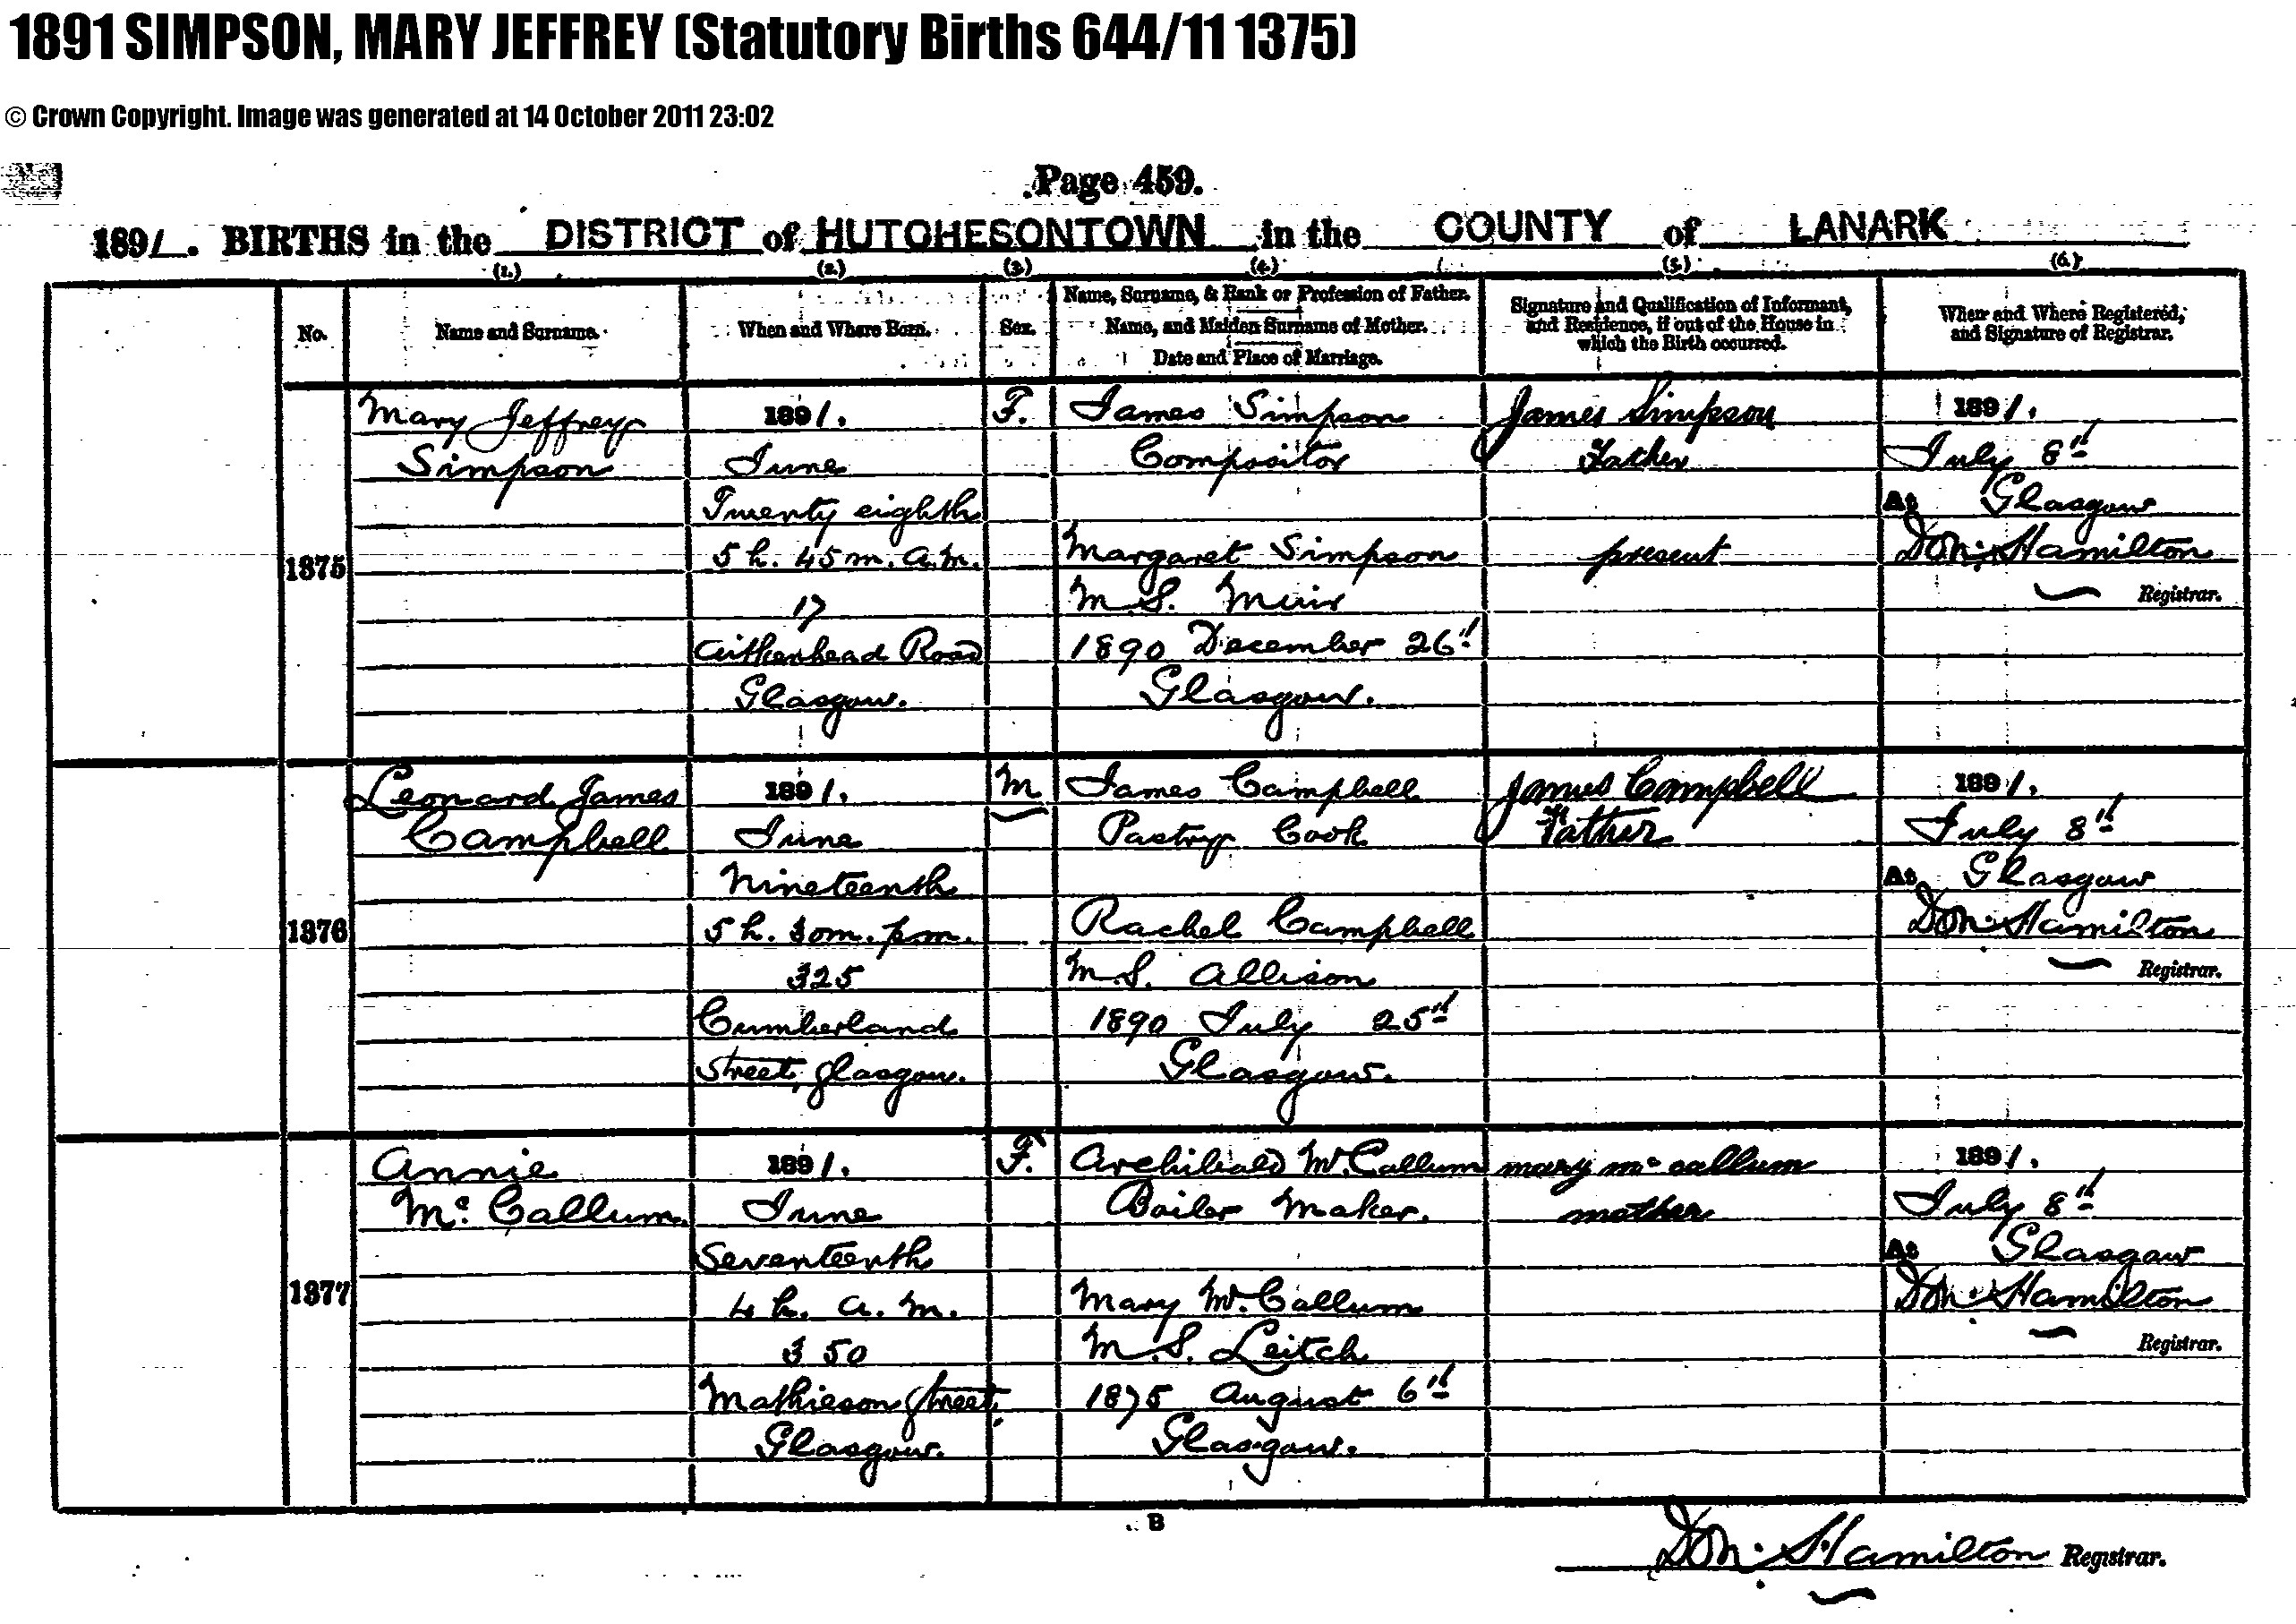 1891 SIMPSON, MARY JEFFREY (Statutory Births 644/11 1375)
© Crown Copyright. Image was generated at 14 October 2011 23:02
Page 459.
1891. BIRTHS in the DISTRICT of HUTCHESONTOWN in the COUNTY of LANARK
(1.) (2.) (3.) (4.) (5.) (6.)
No.
Name and Surname.
When and Where Born.
Sex.
Name, Surname, & Rank or Profession of Father.
Name, and Maiden Surname of Mother.
Date and Place of Marriage.
Signature and Qualification of Informant,
and Residence, if out of the House in
which the Birth occurred.
When and Where Registered,
and Signature of Registrar.
1375
Mary Jeffrey
Simpson
1891.
June
Twenty eighth
5 h. 45 m. a.m.
17
Aitkenhead Road
Glasgow.
F.
James Simpson
Compositor
Margaret Simpson
M.S. Muir
1890 December 26th
Glasgow.
James Simpson
Father
present
1891.
July 8th
At Glasgow
Hamilton
Registrar.
1376
Leonard James
Campbell
1891.
June
Nineteenth
5 h. 30 m. p.m.
325
Cumberland
Street, Glasgow.
M
James Campbell
Pastry Cook
Rachel Campbell
M.S. Allison
1890 July 25th
Glasgow.
James Campbell
Father
1891.
July 8th
At Glasgow
Hamilton
Registrar.
1377
Annie
McCallum.
1891.
June
Seventeenth
4 h. a.m.
350
Mathieson Street,
Glasgow.
F.
Archibald McCallum
Boiler Maker.
Mary McCallum
M.S. Leitch
1875 August 6th
Glasgow.
mary mc callum
mother
1891.
July 8th
At Glasgow
Hamilton
Registrar.
B
Hamilton Registrar.